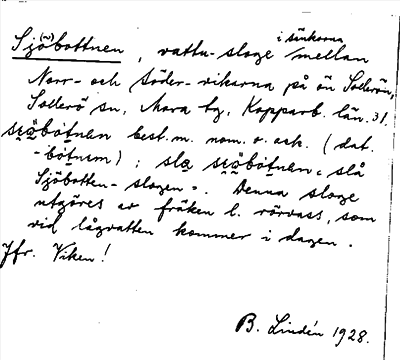 i sänkorna
Sjö(n)bottnen, vattu-sloge mellan
Norr- och Söder-vikarna på ön Sollerön,
Sollerö sn, Mora tg, Kopparb. län. 31.
best. m. nom. o. ack. (dat.
-bo̱tnɩm) : slå
Sjöbotten-slogen". Denna sloge
utgöres av fräken l. rörvass, som
vid lågvatten kommer i dagen.
Jfr. Viken!
B. Lindén 1928.